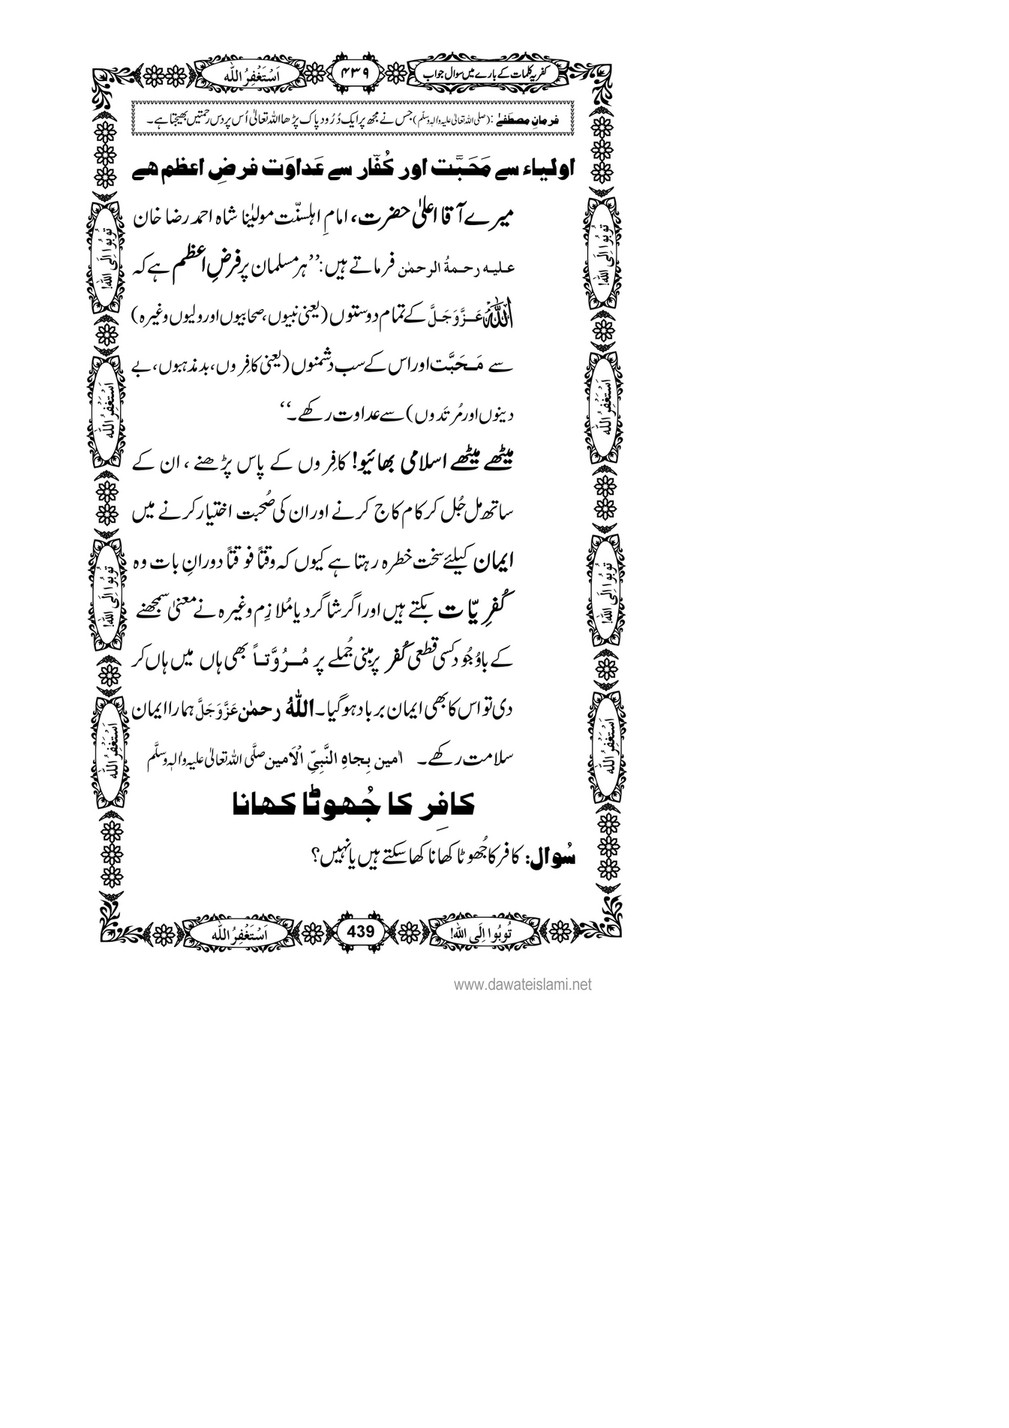 کفریہ کلمات کے بارے میں سوال جواب
۴۳۹
اَسْتَغْفِرُاللّٰه
فرمانِ مصطفےٰ : (صلی اللہ تعالیٰ علیہ والہٖ وسلّم) جس نے مجھ پر ایک دُرُود پاک پڑھا اللہ تعالیٰ اُس پر دس رحمتیں بھیجتا ہے۔
اولیاء سے مَحَبَّت اور کُفّار سے عَداوَت فرضِ اعظم ھے
میرے آقا اعلیٰ حضرت، امامِ اہلسنّت مولیٰنا شاہ احمد رضا خان
علیہ رحمۃُ الرحمٰن فرماتے ہیں: ’’ہر مسلمان پر فرضِ اعظم ہے کہ
اللہ عَزَّوَجَلَّ کے تمام دوستوں (یعنی نبیوں، صحابیوں اور ولیوں وغیرہ)
سے مَحَبَّت اور اس کے سب دشمنوں (یعنی کافِروں، بدمذہبوں، بے
دینوں اور مُرتدوں) سے عداوت رکھے۔‘‘
میٹھے میٹھے اسلامی بھائیو! کافِروں کے پاس پڑھنے ، ان کے
ساتھ مل جُل کر کام کاج کرنے اور ان کی صُحبت اختیار کرنے میں
ایمان کیلئے سخت خطرہ رہتا ہے کیوں کہ وقتاً فوقتاً دورانِ بات وہ
کُفرِیّات بکتے ہیں اور اگر شاگرد یا مُلازِم وغیرہ نے معنٰی سمجھنے
کے باوُجُود کسی قطعی کُفر پر مبنی جُملے پر مُرُوَّتاً بھی ہاں میں ہاں کر
دی تو اس کا بھی ایمان برباد ہو گیا۔ اللّٰهُ رحمٰن عَزَّوَجَلَّ ہمارا ایمان
سلامت رکھے۔ اٰمین بِجاہِ النَّبِیِّ الْاَمین صلَّی اللہ تعالیٰ علیہ واٰلہٖ وسلَّم
کافِر کا جُھوٹا کھانا
سُوال: کافر کا جُھوٹا کھانا کھا سکتے ہیں یا نہیں؟
تُوبُوا اِلَی اللّٰه!
اَسْتَغْفِرُاللّٰه
تُوبُوا اِلَی اللّٰه!
اَسْتَغْفِرُاللّٰه
تُوبُوا اِلَی اللّٰه!
اَسْتَغْفِرُاللّٰه
تُوبُوا اِلَی اللّٰه!
اَسْتَغْفِرُاللّٰه
تُوبُوا اِلَی اللّٰه!
439
اَسْتَغْفِرُاللّٰه
www.dawateislami.net